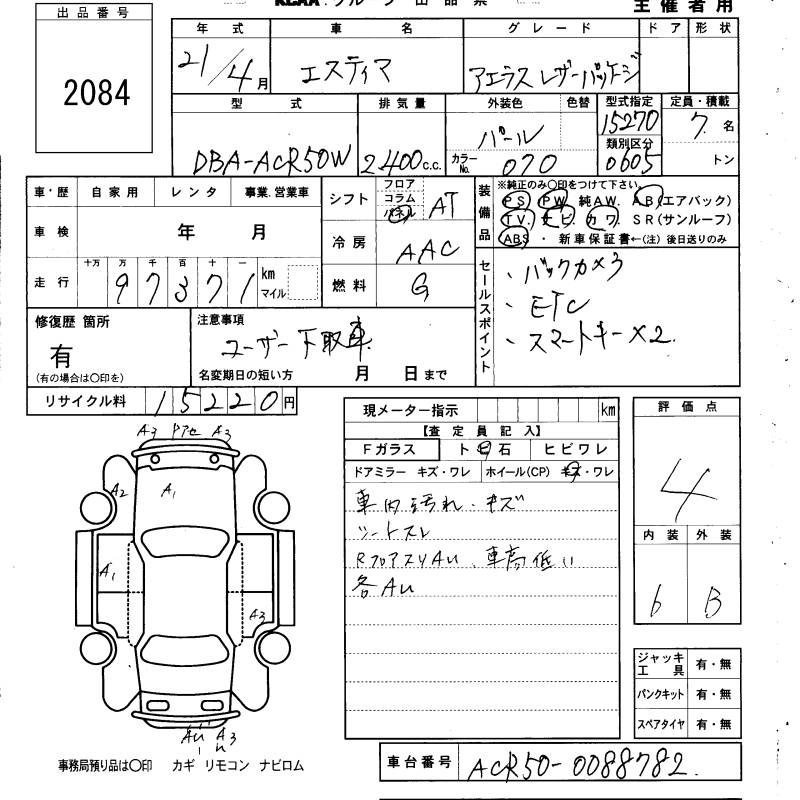 KCAA・グループ 出品票
主催者用
出品番号
2084
年式 車名 グレード ドア 形状
21/4月 エスティマ アエラス レザーパッケージ
型式 排気量 外装色 色替 型式指定 定員・積載
DBA-ACR50W 2400c.c. パール 15270 7名
カラーNo. 070 類別区分 0605 トン
車・歴 自家用 レンタ 事業.営業車
車検 年 月
走行 十万 万 千 百 十 一
97371 km マイル
シフト フロア コラム パネル AT
冷房 AAC
燃料 G
装備品 ※純正のみ〇印をつけて下さい。
PS PW 純AW. AB(エアバック)
TV. ナビ カワ SR(サンルーフ)
ABS ・ 新車保証書←(注) 後日送りのみ
セールスポイント
、バックカメラ
、ETC
、スマートキー×2
修復歴 箇所
有
(有の場合は〇印を)
注意事項
ユーザー下取車
名変期日の短い方 月 日まで
リサイクル料 15220円
現メーター指示 km
【査定員記入】
Fガラス ト飛石 ヒビワレ
ドアミラー キズ・ワレ ホイール(CP) キズ・ワレ
車内汚れ・キズ
シートスレ
RフロアスリAU、車高低い
各AU
評価点
4
内装 外装
6 B
A3 Pアセ A3
A2 A1
A1
A3
AU A3
事務局預り品は〇印 カギ リモコン ナビロム
ジャッキ工具 有・無
パンクキット 有・無
スペアタイヤ 有・無
車台番号 ACR50-0088782